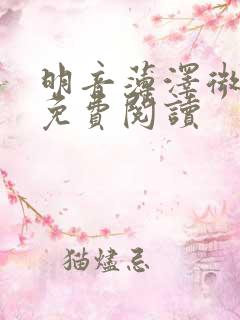 明音薄澤微
免費閱讀
猫燼忌